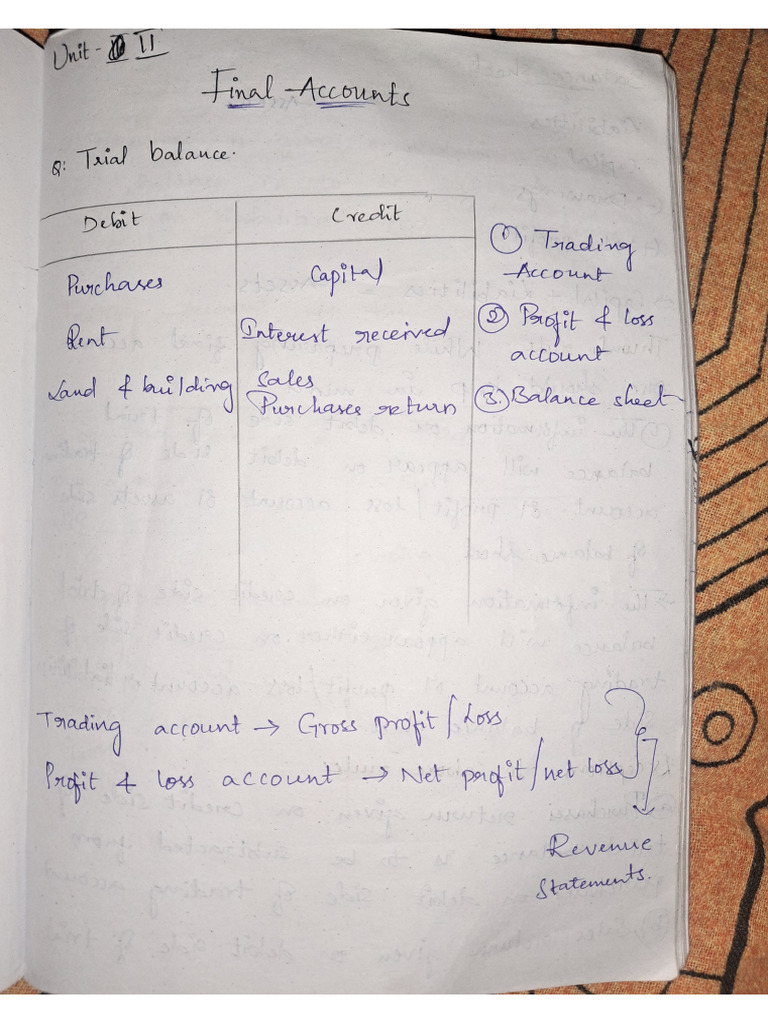 Unit - II
Final Accounts
Q: Trial balance.
Debit Credit
Purchases Capital
Rent Interest received
Land & building Sales
Purchases return
① Trading
Account
② Profit & loss
account
③. Balance sheet
Trading account → Gross profit/Loss
Profit & loss account → Net profit/net loss
Revenue
Statements.